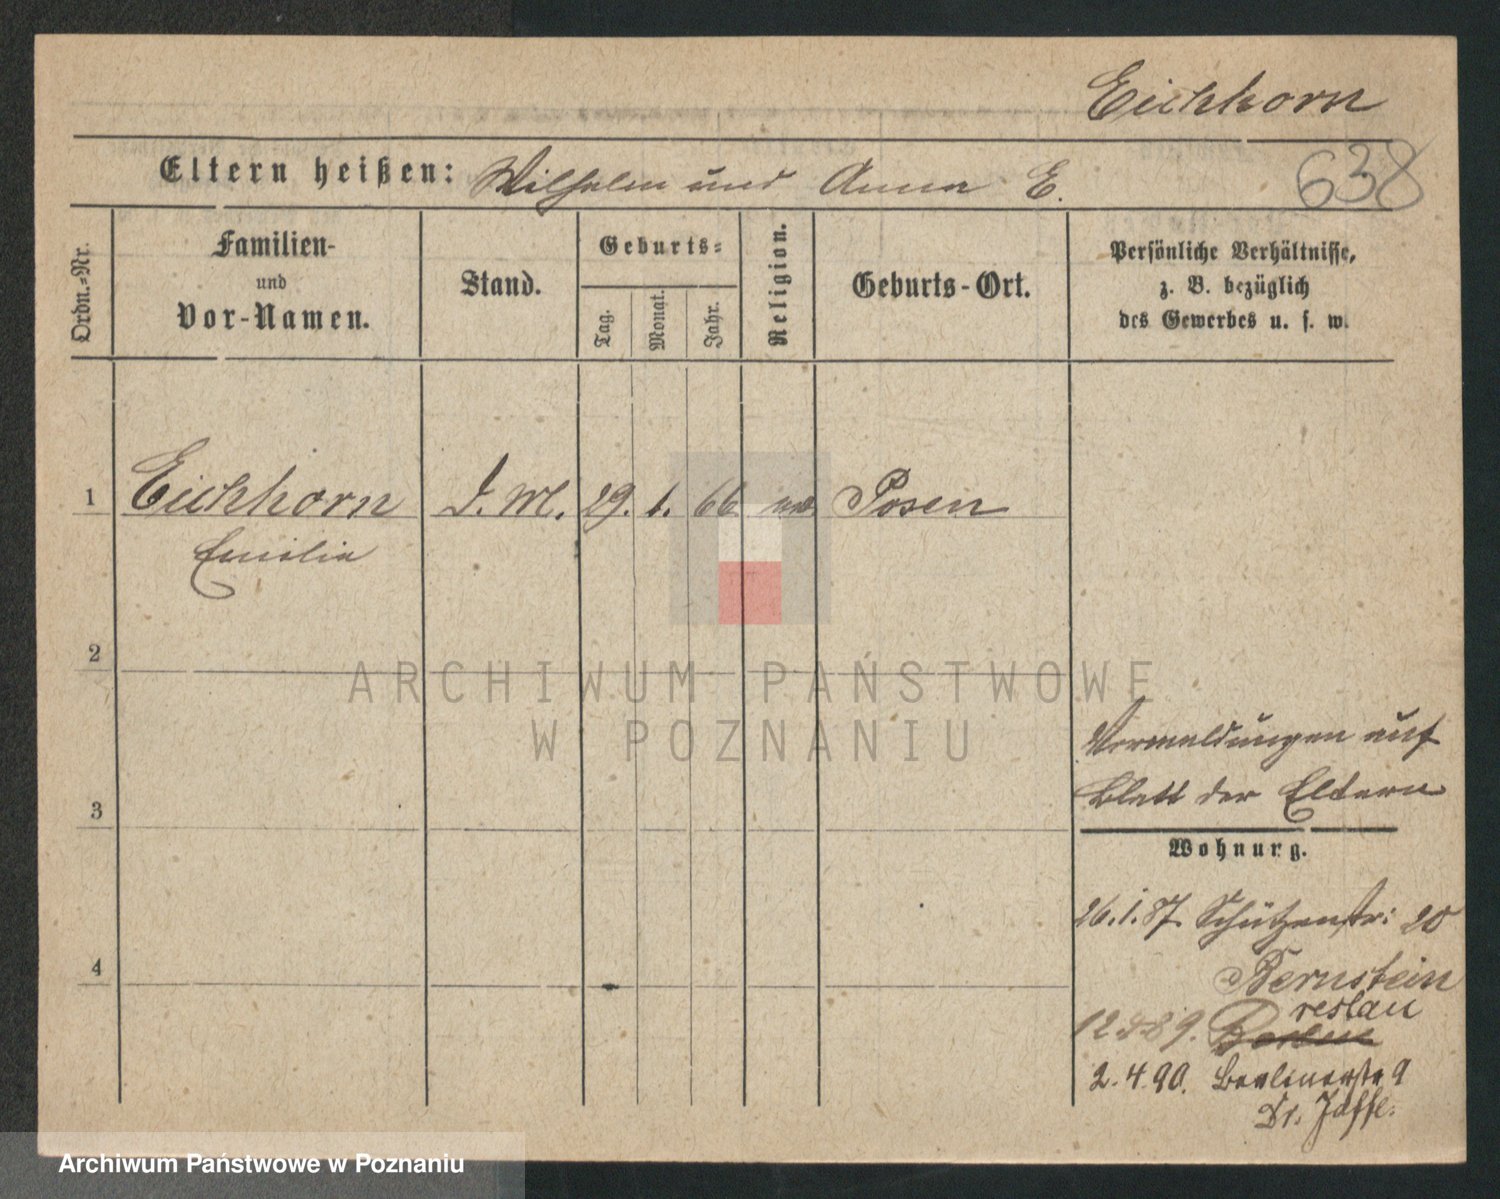 Eichhorn
638
Eltern heißen: Wilhelm und Anna E.
Ordn.=Nr.
Familien-
und
Vor-Namen.
Stand.
Geburts=
Tag.
Monat.
Jahr.
Religion.
Geburts-Ort.
Persönliche Verhältnisse,
z. B. bezüglich
des Gewerbes u. s. w.
1 Eichhorn D. M. 29. 1. 66 Posen
Emilie
2
ARCHIWUM PAŃSTWOWE
W POZNANIU
Vermeldungen auf
Blatt der Eltern
3
Wohnung.
26.1.87 Schützenstr: 20
4
Bernstein
reslau
12 89. Berlin
2.4.90. Berlinerstr 9
Dr. Jaffe.
Archiwum Państwowe w Poznaniu